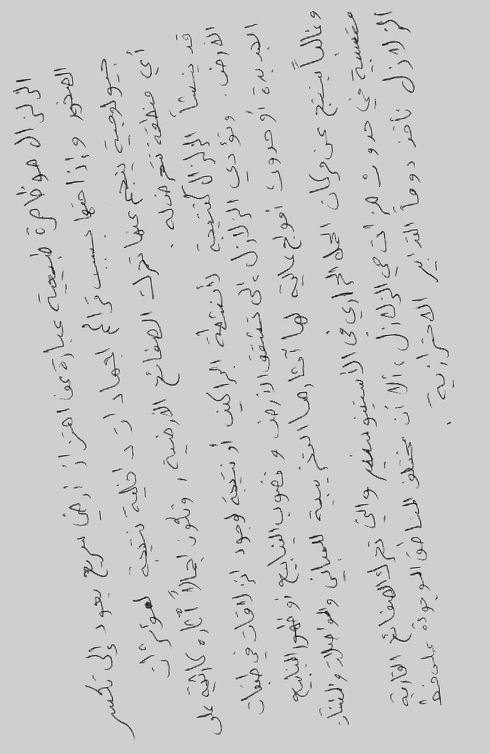 الزلزال هو ظاهرة طبيعية عبارة عن اهتزاز أرضي سريع يعود إلى تكسر
الصخور وإزاحتها بسبب تراكم اجهادات داخلية نتيجة لمؤثرات
جيولوجية ينجم عنها تحرك الصفائح الأرضية، وتكون اجمالاً آثاره كارثية على
أي منطقة تتعرض له.
قد ينشأ الزلزال كنتيجة لأنشطة البراكين أو نتيجة لوجود انزلاقات في طبقات
الأرض. وتؤدي الزلازل إلى تشقق الأرض ونضوب الينابيع أو ظهور الينابيع
الجديدة أو حدوث أمواج عالية لها آثارها التخريبية للمباني والمواصلات والمنشآت
وغالباً ينتج عن حركات الحمل الحراري في الأستينوسفير والتي تحرك الصفائح القارية
متسببة في حدوث هزات هي الزلازل، ألا أن مختلف المناطق الموجودة على خط
الزلازل تأخذ دوماً التدابير الاحترازية.